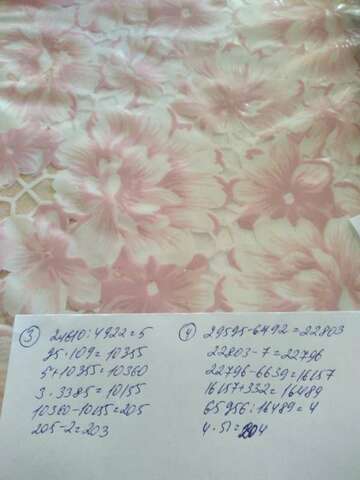 3 24610:4922=5
95·109=10355
5+10355=10360
3·3385=10155
10360-10155=205
205-2=203
4 29595-6492=22803
22803-7=22796
22796-6639=16157
16157+332=16489
65956:16489=4
4·51=204